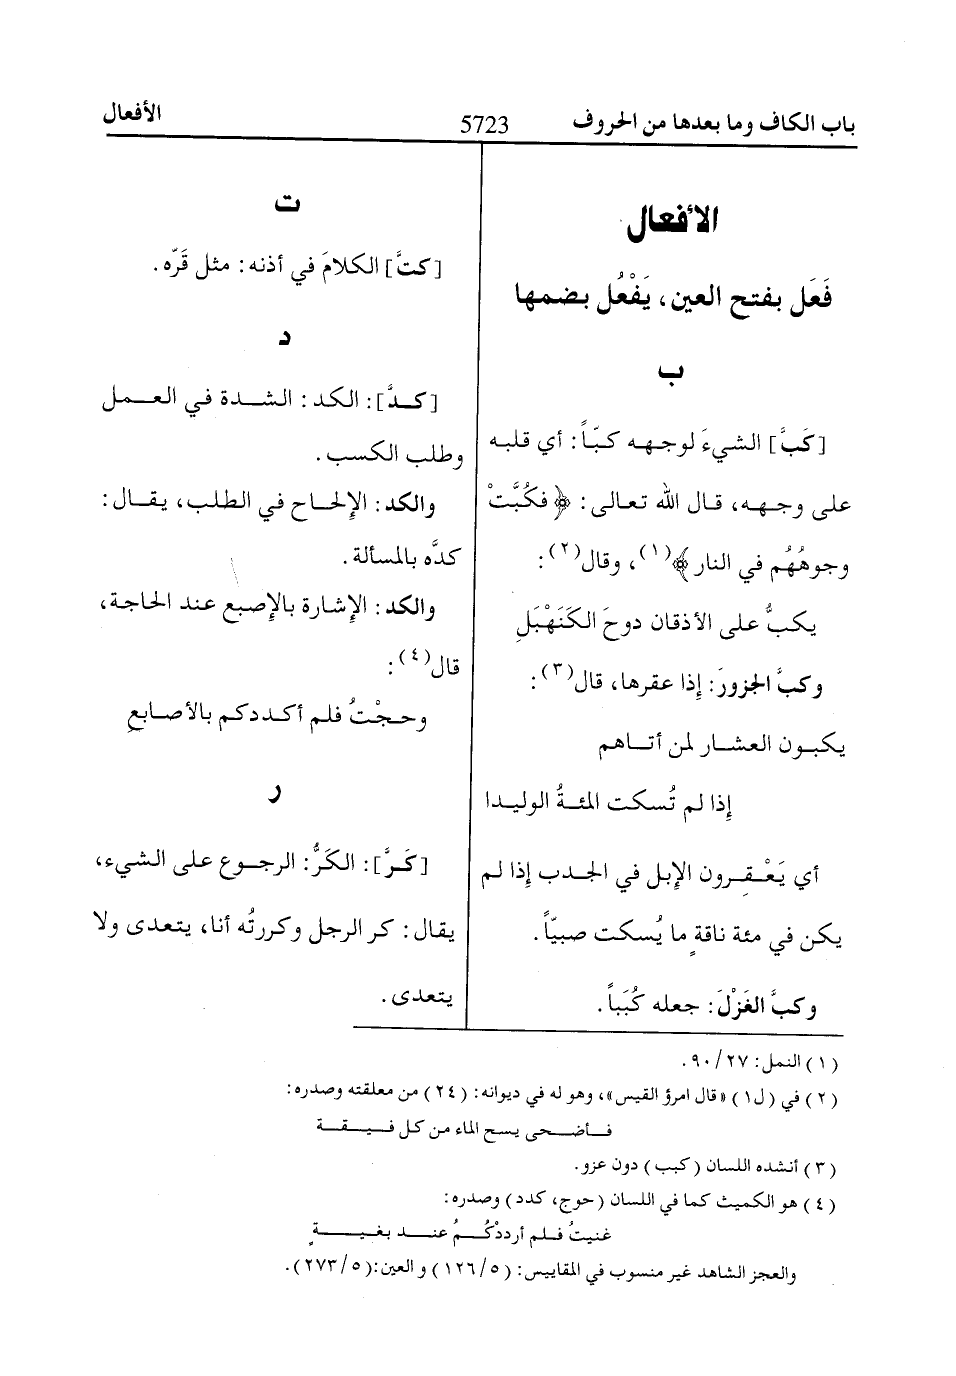 باب الكاف وما بعدها من الحروف
5723
الأفعال
الأفعال
فَعَل بفتح العين، يَفْعُل بضمها
ب
[كَبَّ] الشيءَ لوجهه كبّاً: أي قلبه
على وجهه، قال الله تعالى: ﴿فكُبَّتْ
وجوهُهُم في النار﴾(١)، وقال(٢):
يكبُّ على الأذقان دوحَ الكَنَهْبَلِ
وكبَّ الجزورَ: إذا عقرها، قال(٣):
يكبون العشار لمن أتاهم
إذا لم تُسكت المئةُ الوليدا
أي يَعْقِرون الإبل في الجدب إذا لم
يكن في مئة ناقةٍ ما يُسكت صبيّاً.
وكبَّ الغَزْلَ: جعله كُبَباً.
ت
[كتَّ] الكلامَ في أذنه: مثل قَرّه.
د
[كدَّ]: الكد: الشدة في العمل
وطلب الكسب.
والكد: الإلحاح في الطلب، يقال:
كدَّه بالمسألة.
والكد: الإشارة بالإصبع عند الحاجة،
قال(٤):
وحجْتُ فلم أكددكم بالأصابعِ
ر
[كَرَّ]: الكَرُّ: الرجوع على الشيء،
يقال: كر الرجل وكررتُه أنا، يتعدى ولا
يتعدى.
(١) النمل: ٢٧/ ٩٠.
(٢) في (ل١) «قال امرؤ القيس»، وهو له في ديوانه: (٢٤) من معلقته وصدره:
فأضحى يسح الماء من كل فيقة
(٣) أنشده اللسان (كبب) دون عزو.
(٤) هو الكميث كما في اللسان (حوج، كدد) وصدره:
غنيتُ فلم أرددْكُمُ عند بغيةٍ
والعجز الشاهد غير منسوب في المقاييس: (٥/ ١٢٦) و العين:(٥/ ٢٧٣).